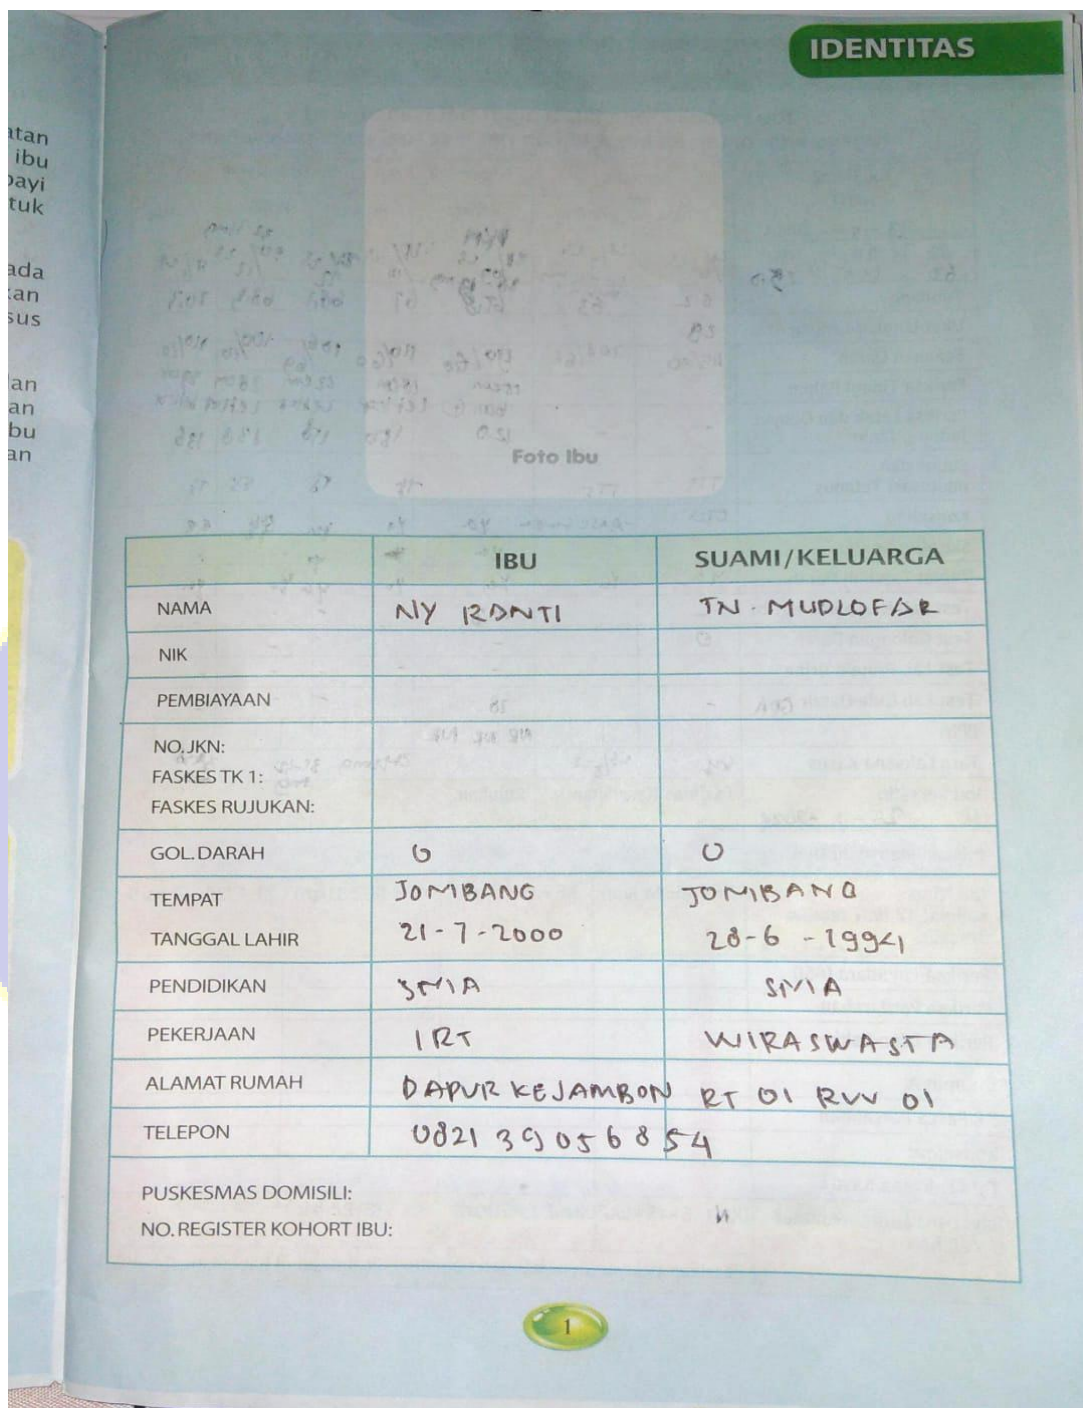 IDENTITAS
atan
ibu
bayi
tuk
ada
kan
sus
lan
an
bu
an
Foto Ibu
IBU SUAMI/KELUARGA
NAMA NY RANTI TN. MUDLOFAR
NIK
PEMBIAYAAN
NO.JKN:
FASKES TK 1:
FASKES RUJUKAN:
GOL.DARAH O O
TEMPAT JOMBANG JOMBANG
TANGGAL LAHIR 21-7-2000 28-6-1994
PENDIDIKAN SMA SMA
PEKERJAAN IRT WIRASWASTA
ALAMAT RUMAH DAPUR KEJAMBON RT 01 RW 01
TELEPON 082139056854
PUSKESMAS DOMISILI:
NO.REGISTER KOHORT IBU:
1